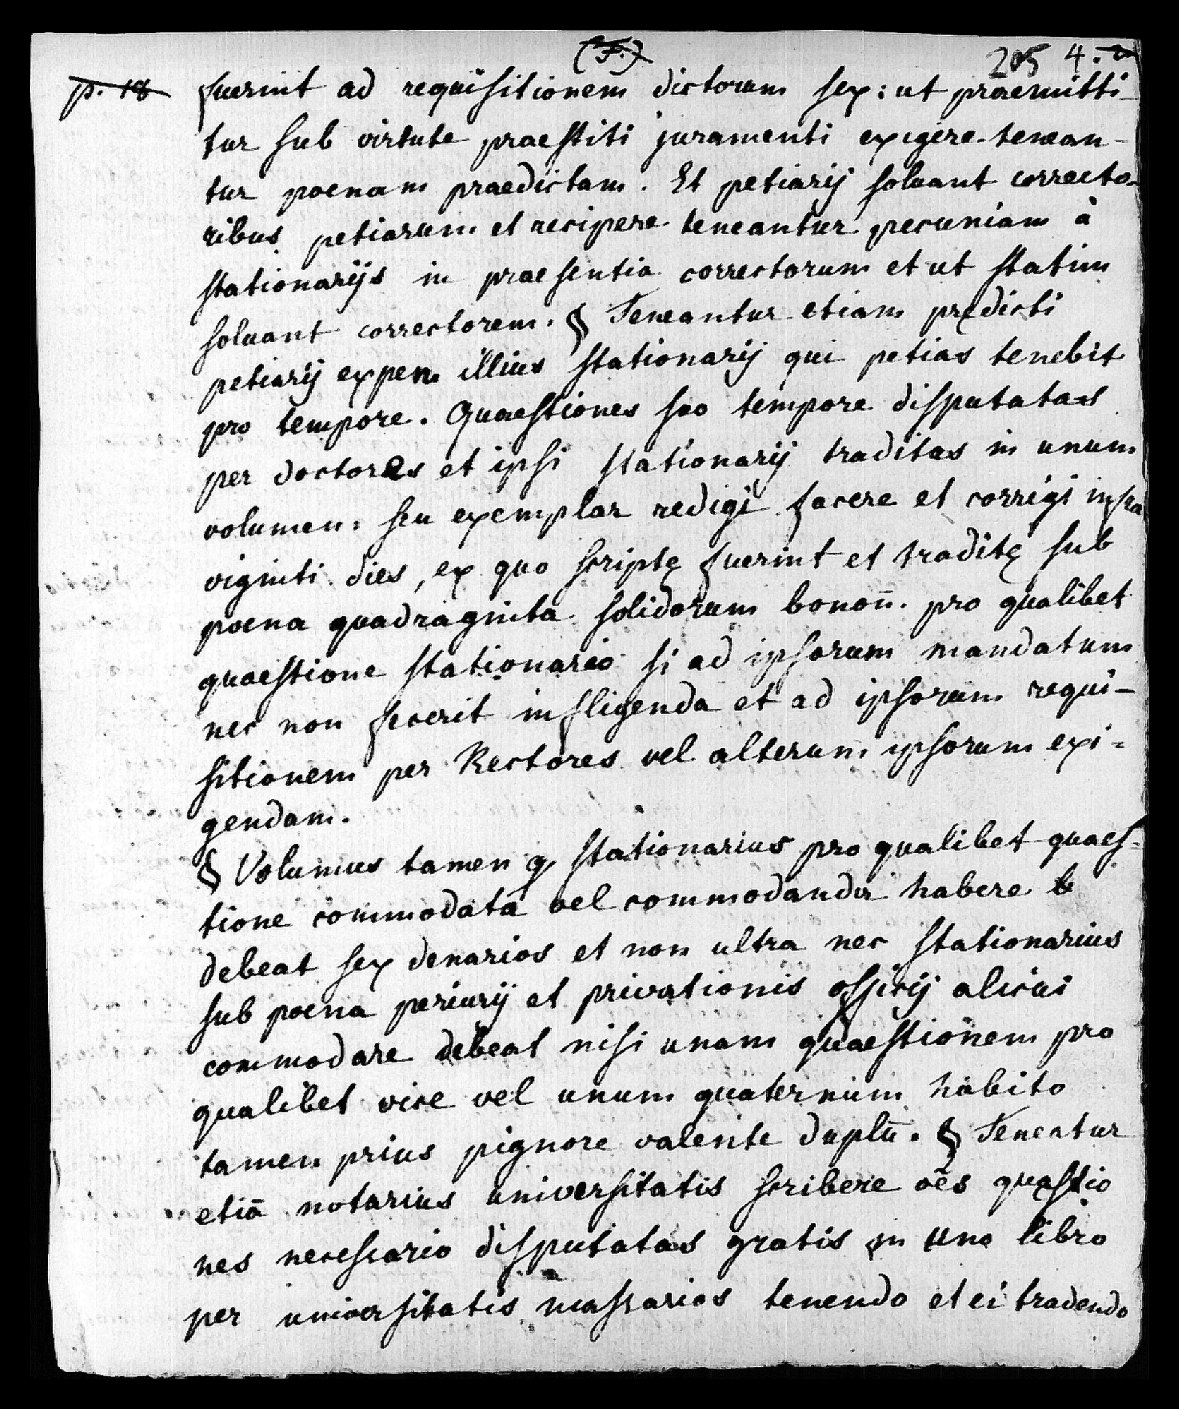 (F.)
205 4.
p. 18 fuerint ad requisitionem dictorum sex: ut praemitti-
tur sub virtute praestiti juramenti exigere tenean-
tur poenam praedictam. Et petiarij soluant correcto-
ribus petiarum et recipere teneantur pecuniam à
stationarijs in praesentia correctorum et ut statim
soluant correctorem. § Teneantur etiam prędicti
petiarij expen illius stationarij qui petias tenebit
pro tempore. Quaestiones suo tempore disputatas
per doctores et ipsi stationarij traditas in unum
volumen seu exemplar redigi facere et corrigi infra
viginti dies, ex quo scriptę fuerint et traditę sub
poena quadraginta solidorum bonoñ. pro qualibet
quaestione stationario si ad ipsorum mandatum
nec non fecerit infligenda et ad ipsorum requi-
sitionem per Rectores vel alterum ipsorum exi-
gendam.
§ Volumus tamen q stationarius pro qualibet quaes-
tione commodata vel commodanda habere
debeat sex denarios et non ultra nec stationarius
sub poena periurij et privationis officij alicui
commodare debeat nisi unam quaestionem pro
qualibet vice vel unum quaternum habito
tamen prius pignore valente duplū. § Teneatur
etiā notarius universitatis scribere oēs quaestio
nes necessario disputatas gratis in uno libro
per universitatis massarios tenendo et ei tradendo